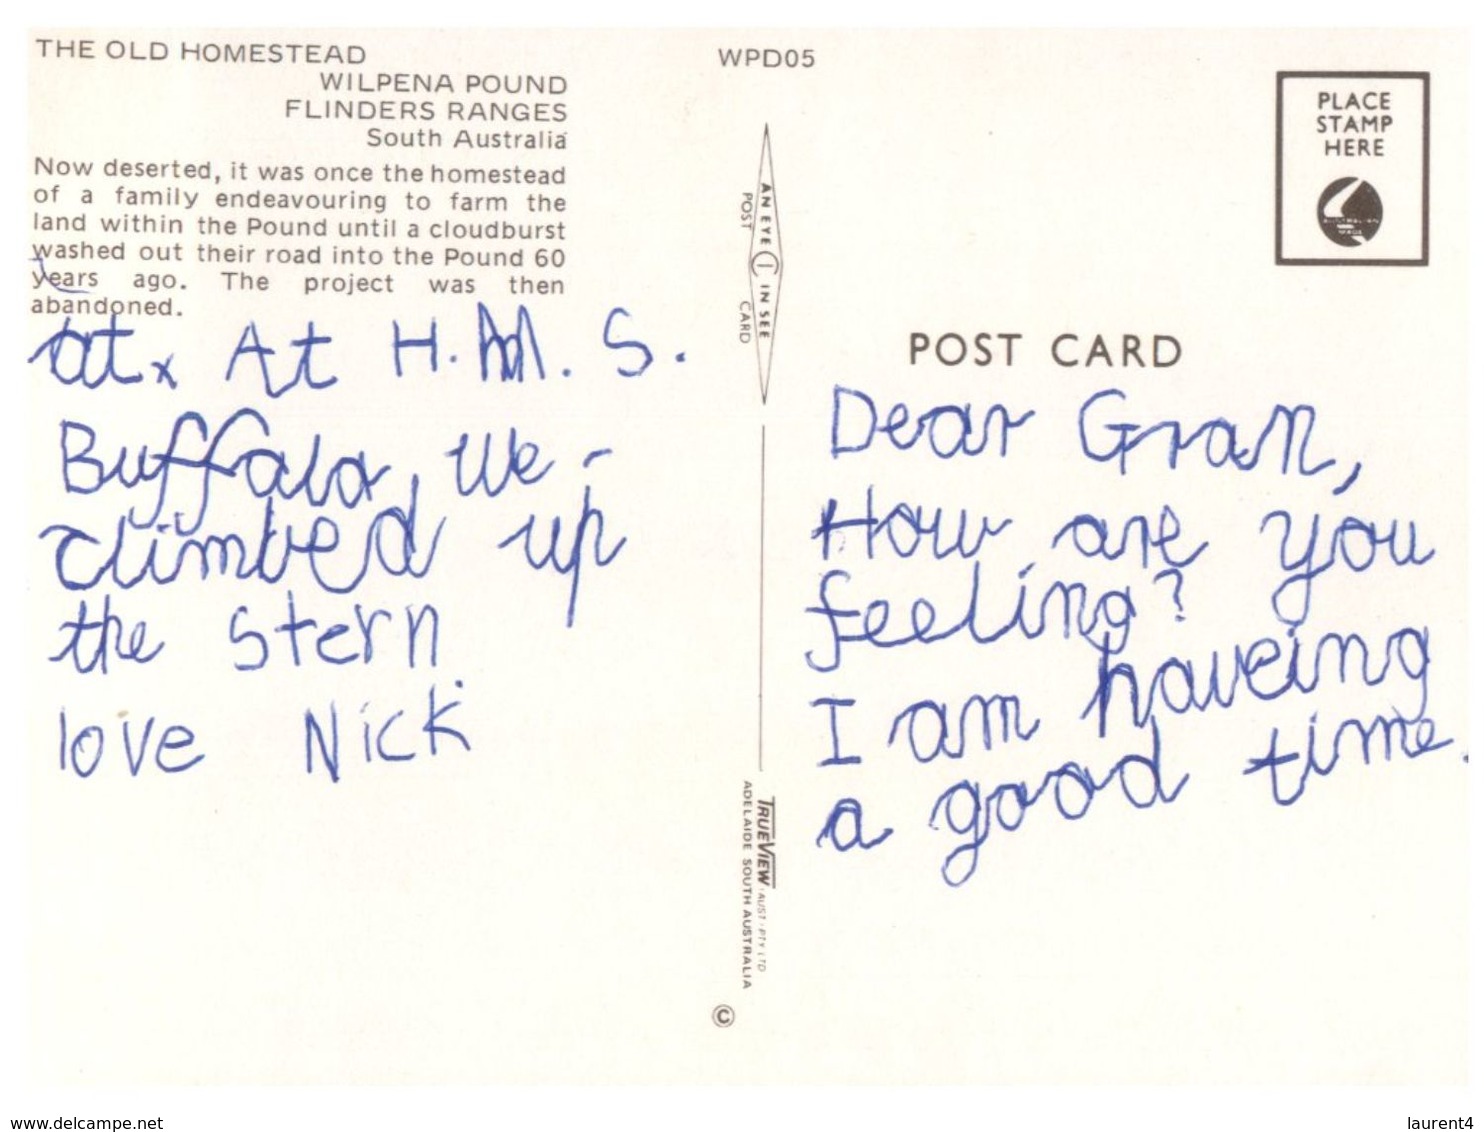 THE OLD HOMESTEAD
WILPENA POUND
FLINDERS RANGES
South Australia
Now deserted, it was once the homestead
of a family endeavouring to farm the
land within the Pound until a cloudburst
washed out their road into the Pound 60
years ago. The project was then
abandoned.
at x At H.M.S.
Buffalo, we -
climbed up
the stern.
love Nick
WPD05
AN EYE IN SEE
POST CARD
TRUEVIEW (AUST) PTY LTD
ADELAIDE SOUTH AUSTRALIA
©
PLACE
STAMP
HERE
POST CARD
Dear Gran,
How are you
feeling?
I am haveing
a good time.
www.delcampe.net
laurent4